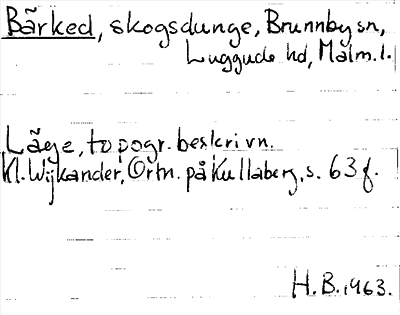 Bärked, skogsdunge, Brunnby sn,
Luggude hd, Malm.l.
Läge, topogr. beskrivn.
Kl. Wijkander, Ortn. på Kullaberg, s. 63 f.
H.B. 1963.